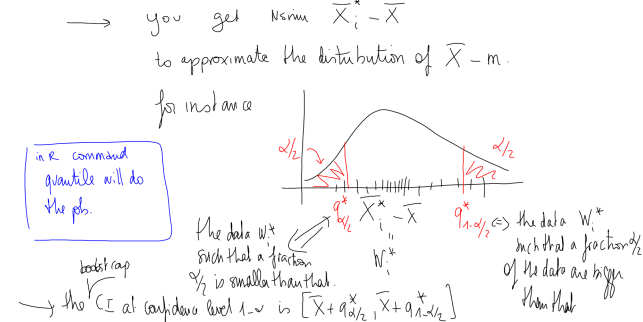 → you get Nsim X̄*ᵢ - X̄
to approximate the distribution of X̄ - m.
for instance
in R command
quantile will do
the job.
α/2
α/2
q*α/2
X̄*ᵢ - X̄
q*1-α/2
=
Wᵢ*
the data Wᵢ*
such that a fraction
α/2 is smaller than that.
⇔ the data Wᵢ*
such that a fraction α/2
of the data are bigger
than that
bootstrap
→ the CI at confidence level 1-α is [X̄ + q*α/2, X̄ + q*1-α/2]